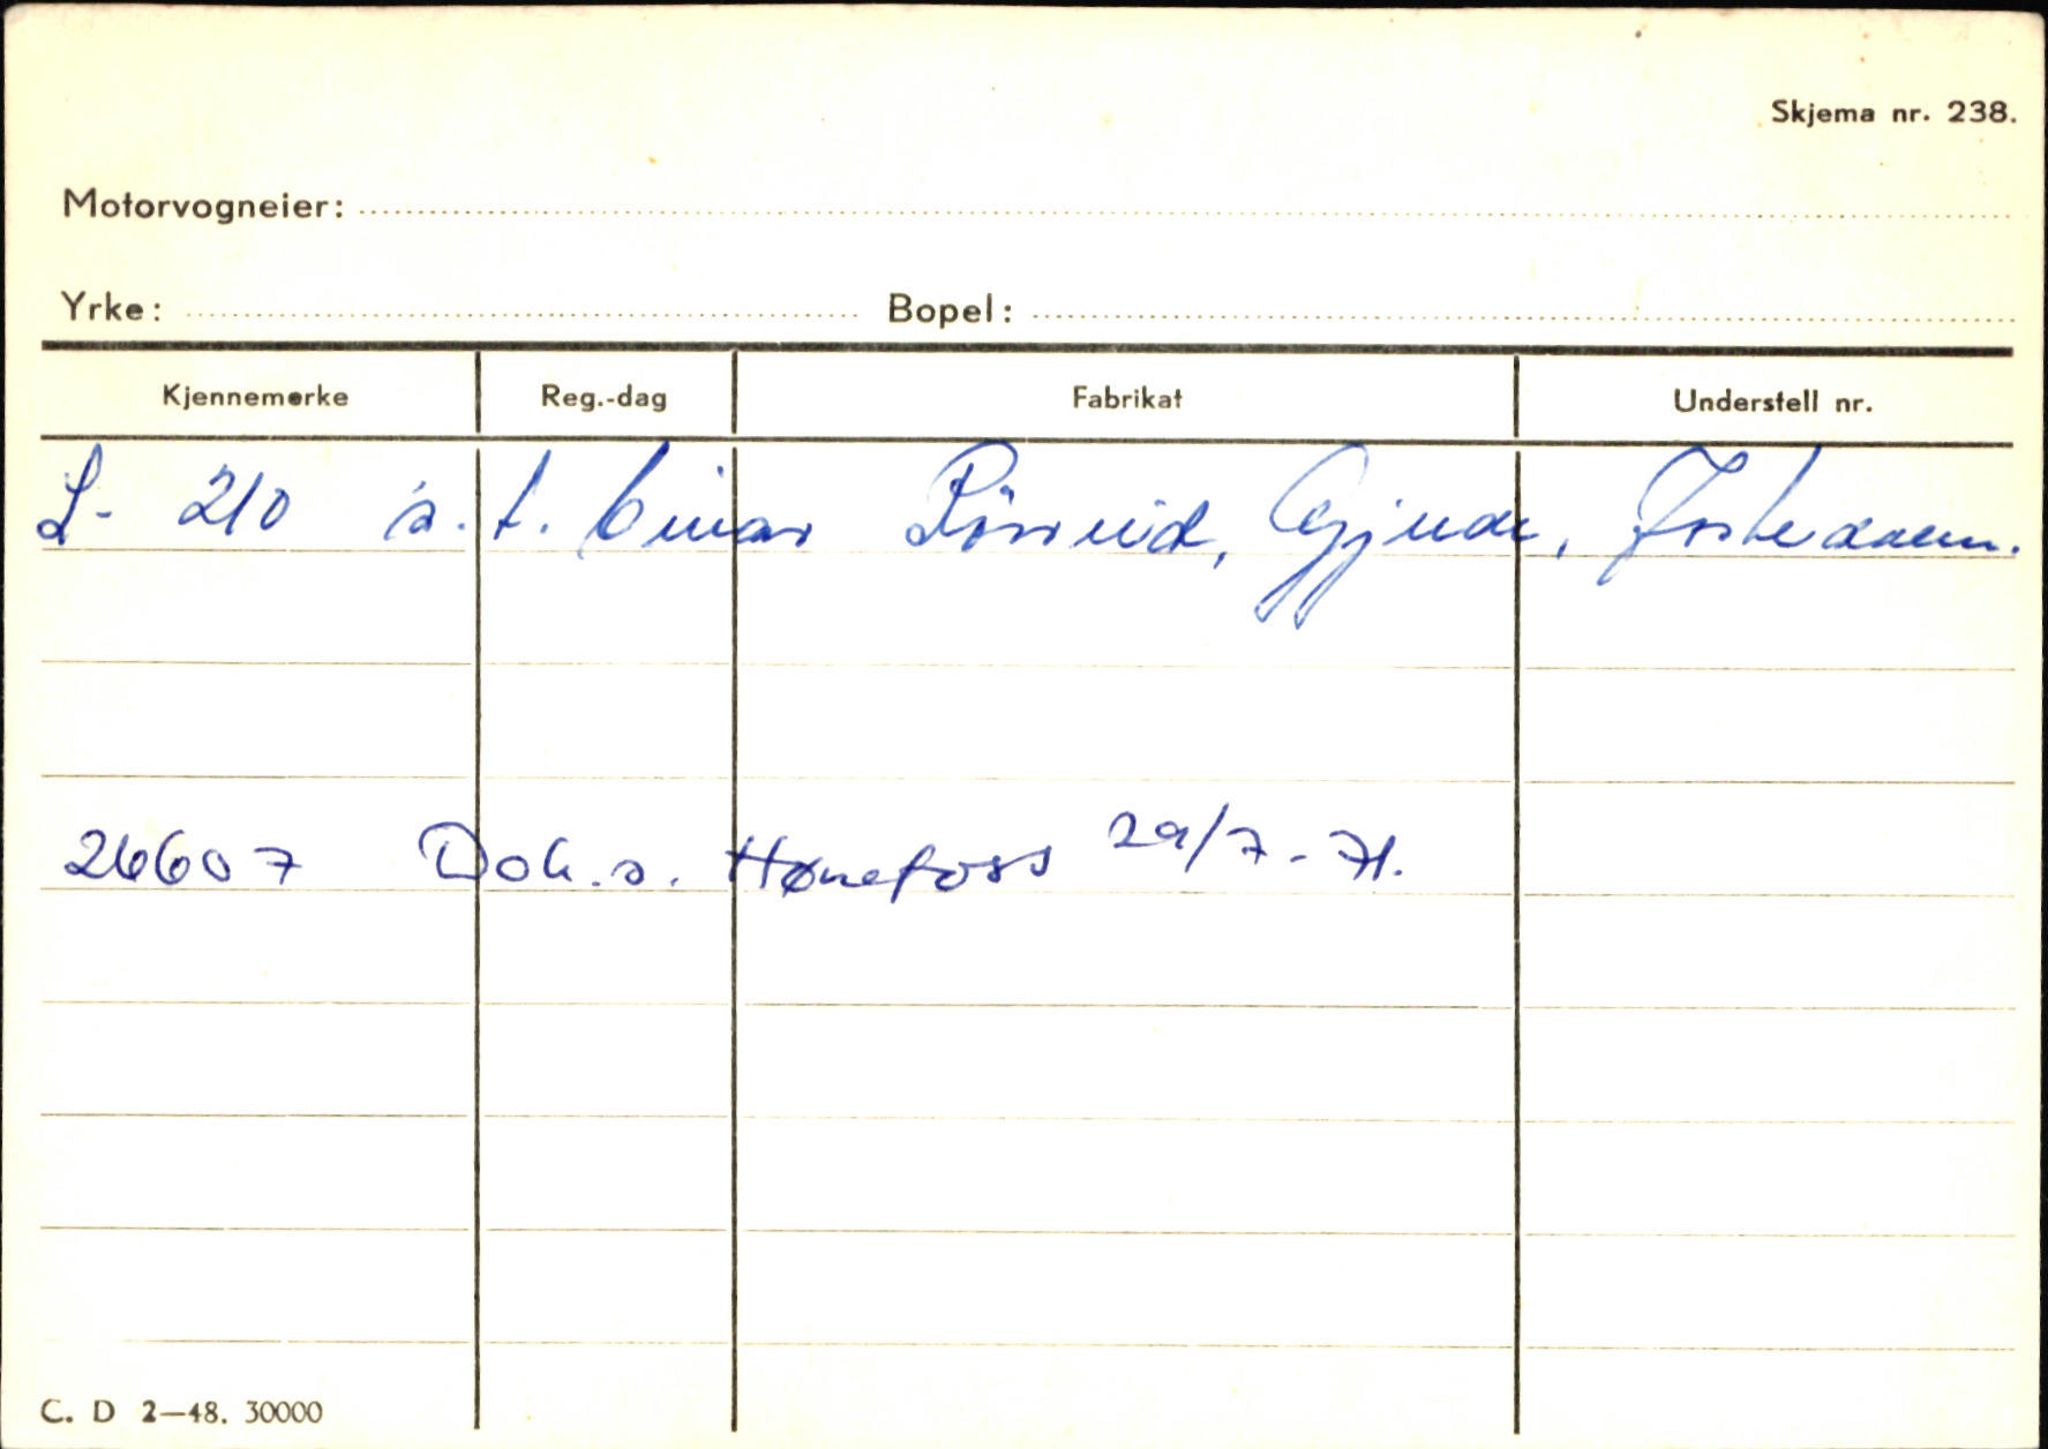 Skjema nr. 238.
Motorvogneier:
Yrke: Bopel:
Kjennemerke Reg.-dag Fabrikat Understell nr.
L- 210 s.t. Einar Gjerde, Jostedalen.
26607 Dok.s. Hønefoss 29/7-71.
C. D 2—48. 30000